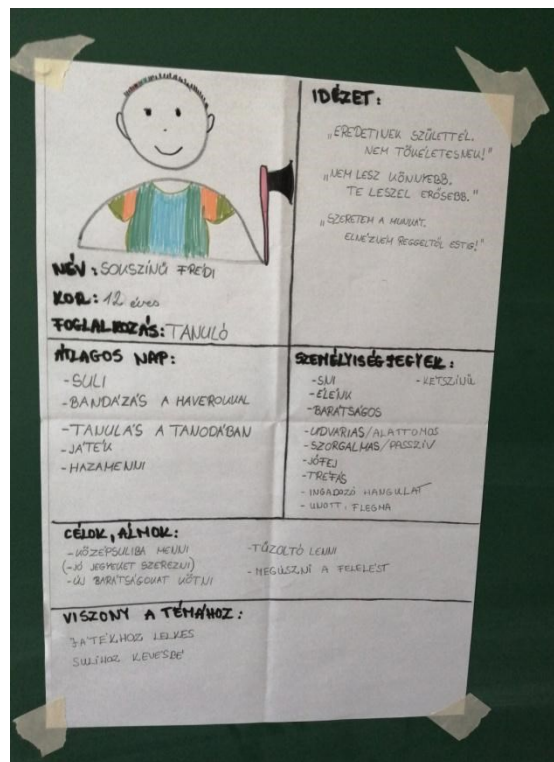 NÉV: SOKSZÍNŰ FREDI
KOR: 12 éves
FOGLALKOZÁS: TANULÓ
IDÉZET:
„EREDETINEK SZÜLETTÉL.
NEM TÖKÉLETESNEK!"
„NEM LESZ KÖNNYEBB.
TE LESZEL ERŐSEBB."
„SZERETEM A MUNKÁT.
ELNÉZNÉM REGGELTŐL ESTIG!"
ÁTLAGOS NAP:
-SULI
-BANDÁZÁS A HAVEROKKAL
-TANULÁS A TANODÁBAN
-JÁTÉK
-HAZAMENNI
SZEMÉLYISÉGJEGYEK:
-SNI -KÉTSZÍNŰ
-ÉLÉNK
-BARÁTSÁGOS
-UDVARIAS/ALATTOMOS
-SZORGALMAS/PASSZÍV
-JÓFEJ
-TRÉFÁS
-INGADOZÓ HANGULAT
-UNOTT, FLEGMA
CÉLOK, ÁLMOK:
-KÖZÉPSULIBA MENNI -TŰZOLTÓ LENNI
(-JÓ JEGYEKET SZEREZNI) -MEGÚSZNI A FELELÉST
-ÚJ BARÁTSÁGOKAT KÖTNI
VISZONY A TÉMÁHOZ:
JÁTÉKHOZ LELKES
SULIHOZ KEVÉSBÉ